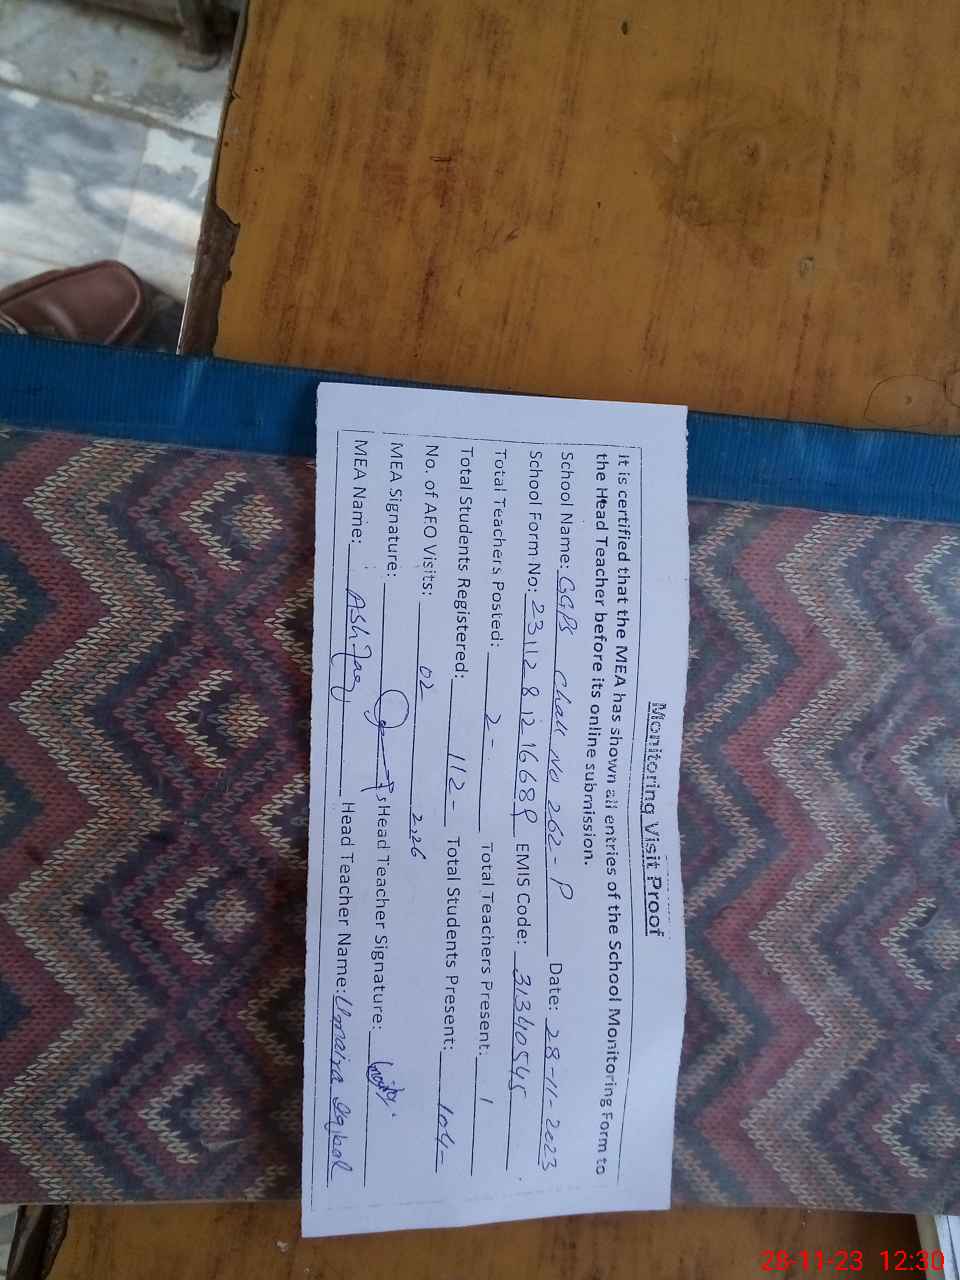 Monitoring Visit Proof
It is certified that the MEA has shown all entries of the School Monitoring Form to
the Head Teacher before its online submission.
School Name: GGPS Chak No 262-P Date: 28-11-2023
School Form No: 2311281216689 EMIS Code: 31340545
Total Teachers Posted: 2- Total Teachers Present: 1
Total Students Registered: 112- Total Students Present: 104-
No. of AEO Visits: 02 2,26
MEA Signature: Head Teacher Signature:
MEA Name: Ashfaq Head Teacher Name: Umaira Iqbal
28-11-23 12:30